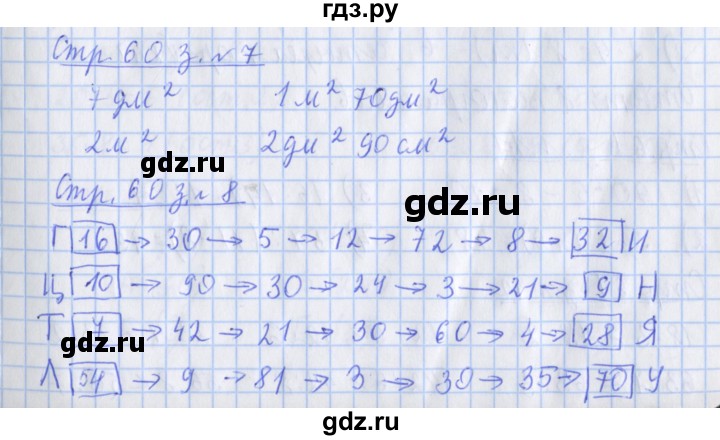 гдз.ру
Стр. 60 з. № 7
7 дм² 1 м² 70 дм²
2 м² 2 дм² 90 см²
gdz.ru gdz.ru
Стр. 60 з. № 8
gdz.ru
Г 16 → 30 → 5 → 12 → 72 → 8 → 32 И
Ц 10 → 90 → 30 → 24 → 3 → 21 → 9 Н
Т 7 → 42 → 21 → 30 → 60 → 4 → 28 Я
gdz.ru gdz.ru
Л 54 → 9 → 81 → 3 → 30 → 35 → 70 У
gdz.ru